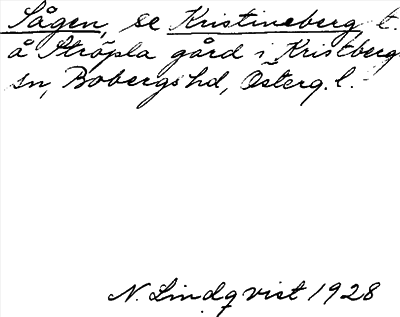 Sågen, se Kristineberg, t.
å Ströpla gård i Kristberg
sn, Bobergs hd, Österg. l.
N. Lindqvist 1928